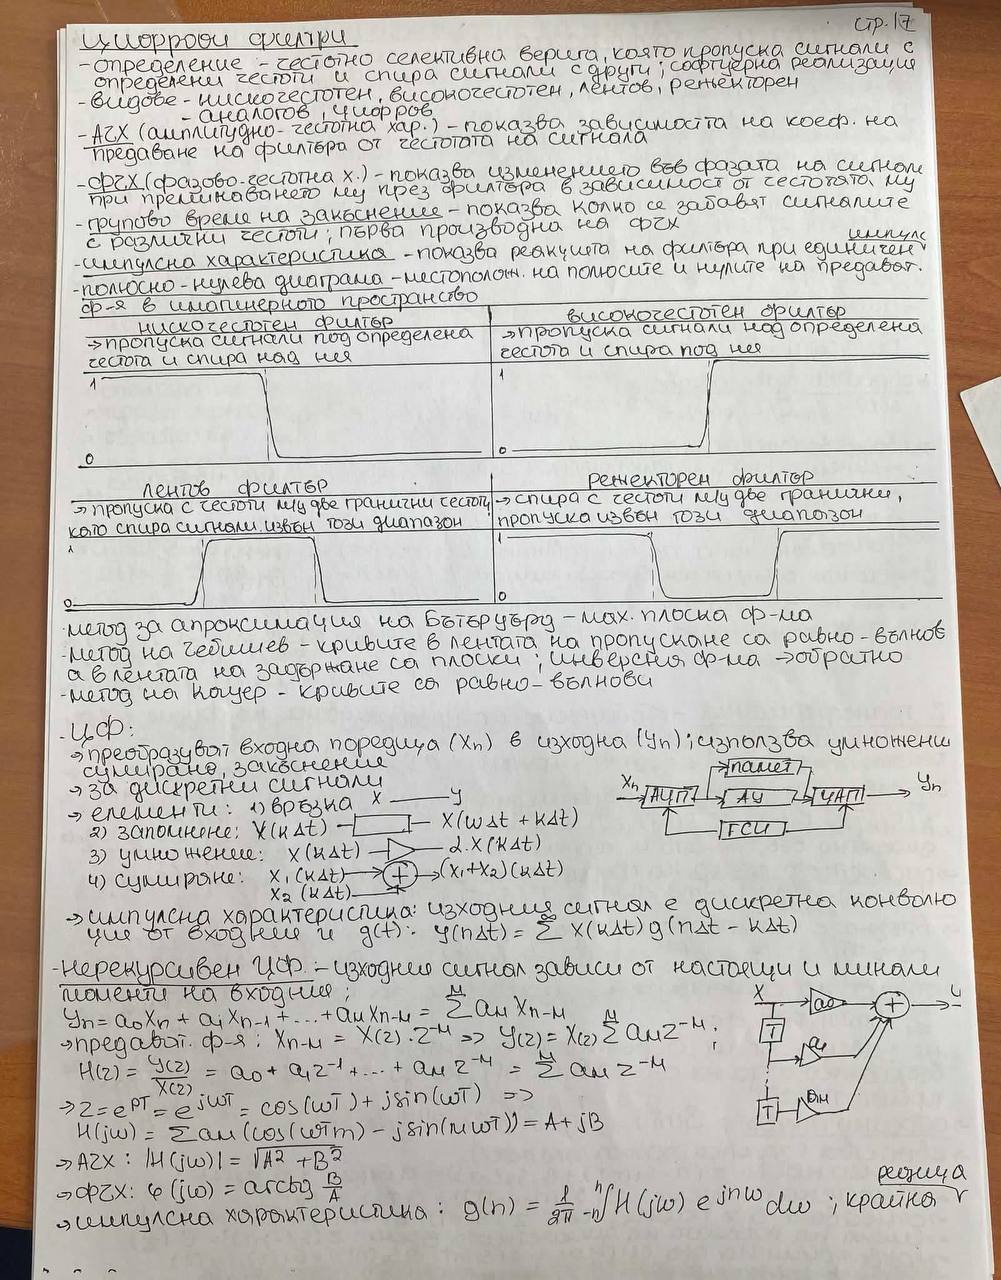 стр. 17
Цифрови филтри
- определение - честотно селективна верига, която пропуска сигнали с
определени честоти и спира сигнали с други; софтуерна реализация
- видове - нискочестотен, високочестотен, лентов, режекторен
- аналогов, цифров
- АЧХ (амплитудно-честотна хар.) - показва зависимостта на коеф. на
предаване на филтъра от честотата на сигнала
- ФЧХ (фазово-честотна х.) - показва изменението във фазата на сигнала
при преминаването му през филтъра в зависимост от честотата му
- групово време на закъснение - показва колко се забавят сигналите
с различни честоти; първа производна на ФЧХ
импулс
- импулсна характеристика - показва реакцията на филтъра при единичен
- полюсно-нулева диаграма - местополож. на полюсите и нулите на предават.
ф-я в имагинерното пространство
нискочестотен филтър
→ пропуска сигнали под определена
честота и спира над нея
1
0
високочестотен филтър
→ пропуска сигнали над определена
честота и спира под нея
1
0
лентов филтър
→ пропуска с честоти м/у две гранични честоти,
като спира сигнали извън този диапазон
1
0
режекторен филтър
→ спира с честоти м/у две гранични,
пропуска извън този диапазон
1
0
- метод за апроксимация на Бътъруърд - мах. плоска ф-ма
- метод на Чебишев - кривите в лентата на пропускане са равно-вълнов
а в лентата на задържане са плоски; инверсия ф-ма → обратно
- метод на Кауер - кривите са равно-вълнови
- ЦФ:
→ преобразуват входна поредица (Xn) в изходна (Yn); използва умножени
сумиране, закъснение
→ за дискретни сигнали
→ елементи: 1) връзка X — Y
2) запомнене: X(kΔt) X(wΔt + kΔt)
3) умножение: X(kΔt) α.X(kΔt)
4) сумиране: X1(kΔt) + (X1+X2)(kΔt)
X2(kΔt)
памет
Xn АЦП АУ ЦАП Yn
ГСИ
→ импулсна характеристика: изходния сигнал е дискретна конволю
ция от входния и g(t): y(nΔt) = Σ X(kΔt) g(nΔt - kΔt)
- нерекурсивен ЦФ - изходния сигнал зависи от настоящи и минали
моменти на входния;
Yn = a0Xn + a1Xn-1 + ... + aMXn-M = Σ^M aM Xn-M
→ предават. ф-я: Xn-M = X(z).z^-M => Y(z) = X(z) Σ^M aM z^-M;
H(z) = Y(z)/X(z) = a0 + a1z^-1 + ... + aM z^-M = Σ^M aM z^-M
→ z = e^pT = e^jωT = cos(ωT) + jsin(ωT) =>
H(jω) = Σ aM (cos(ωTm) - jsin(mωT)) = A + jB
→ АЧХ: |H(jω)| = √A² + B²
→ ФЧХ: φ(jω) = arctg B/A
редица
→ импулсна характеристика: g(n) = 1/2π ∫ H(jω) e^jnω dω; крайна
X a0 +
T a1
T